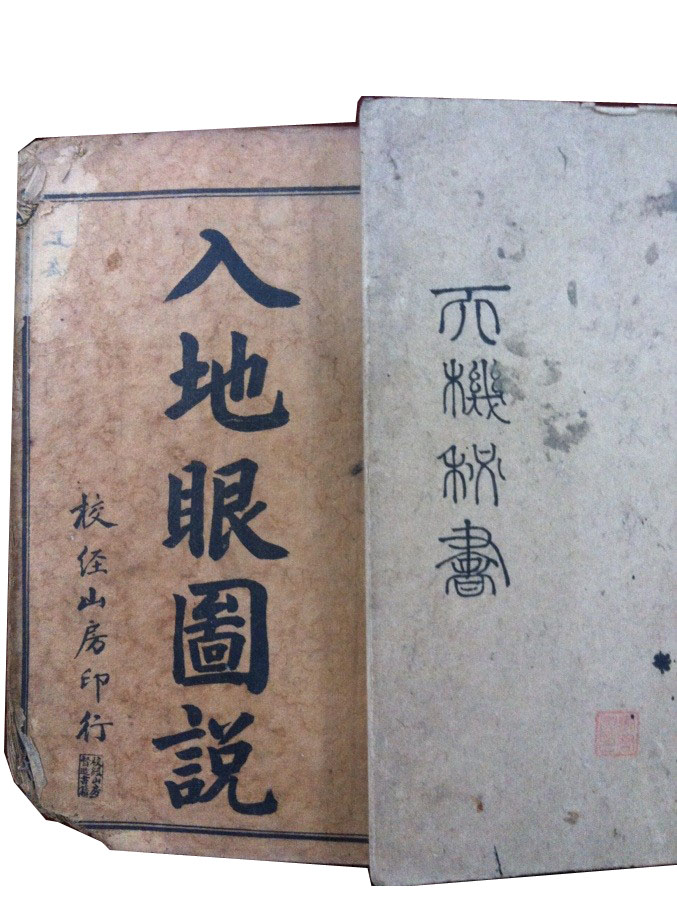 天機秘書
入地眼圖說
校经山房印行